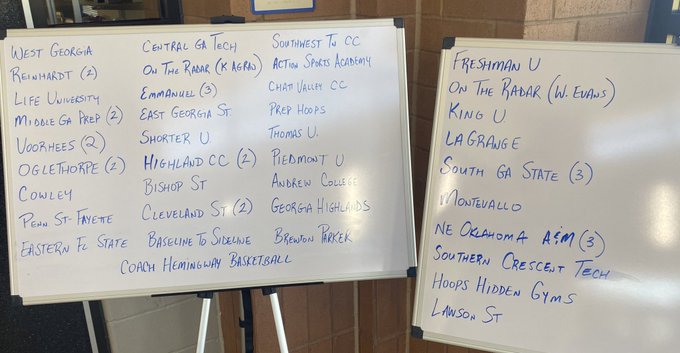 West Georgia
Reinhardt (2)
Life University
Middle Ga Prep (2)
Voorhees (2)
Oglethorpe (2)
Cowley
Penn St-Fayette
Eastern FL State
Central GA Tech
On The Radar (K Agran)
Emmanuel (3)
East Georgia St.
Shorter U.
Highland CC (2)
Bishop St
Cleveland St (2)
Baseline To Sideline
Southwest Tn CC
Action Sports Academy
Chatt Valley CC
Prep Hoops
Thomas U.
Piedmont U
Andrew College
Georgia Highlands
Brewton Parker
Coach Hemingway Basketball
Freshman U
On The Radar (W. Evans)
King U
LaGrange
South GA State (3)
Montevallo
NE Oklahoma A&M (3)
Southern Crescent Tech
Hoops Hidden Gyms
Lawson St